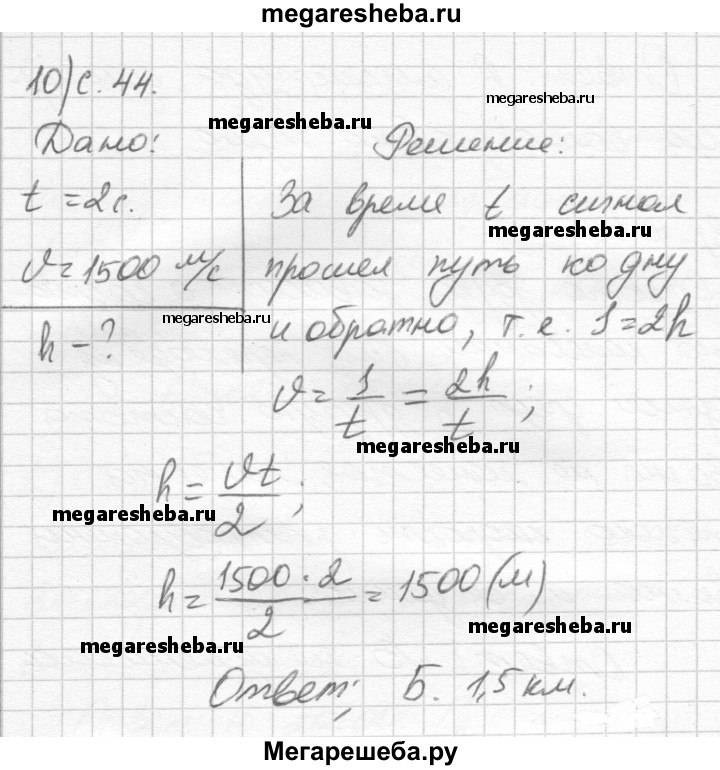 megaresheba.ru
10) с. 44.
megaresheba.ru
megaresheba.ru
Дано:
Решение:
t = 2с.
За время t сигнал
megaresheba.ru
υ = 1500 м/с
прошел путь ко дну
megaresheba.ru
h - ?
и обратно, т.е. S = 2h
υ = S/t = 2h/t ;
megaresheba.ru
h = υt/2 ;
megaresheba.ru
h = 1500 · 2/2 = 1500 (м)
megaresheba.ru
megaresheba.ru
Ответ; Б. 1,5 км.
Мегарешеба.ру